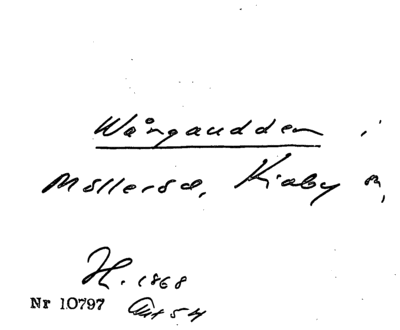 Wångaudden i
Mölleröd, Kiaby sn,
H. 1868
Nr 10797 Akt 54